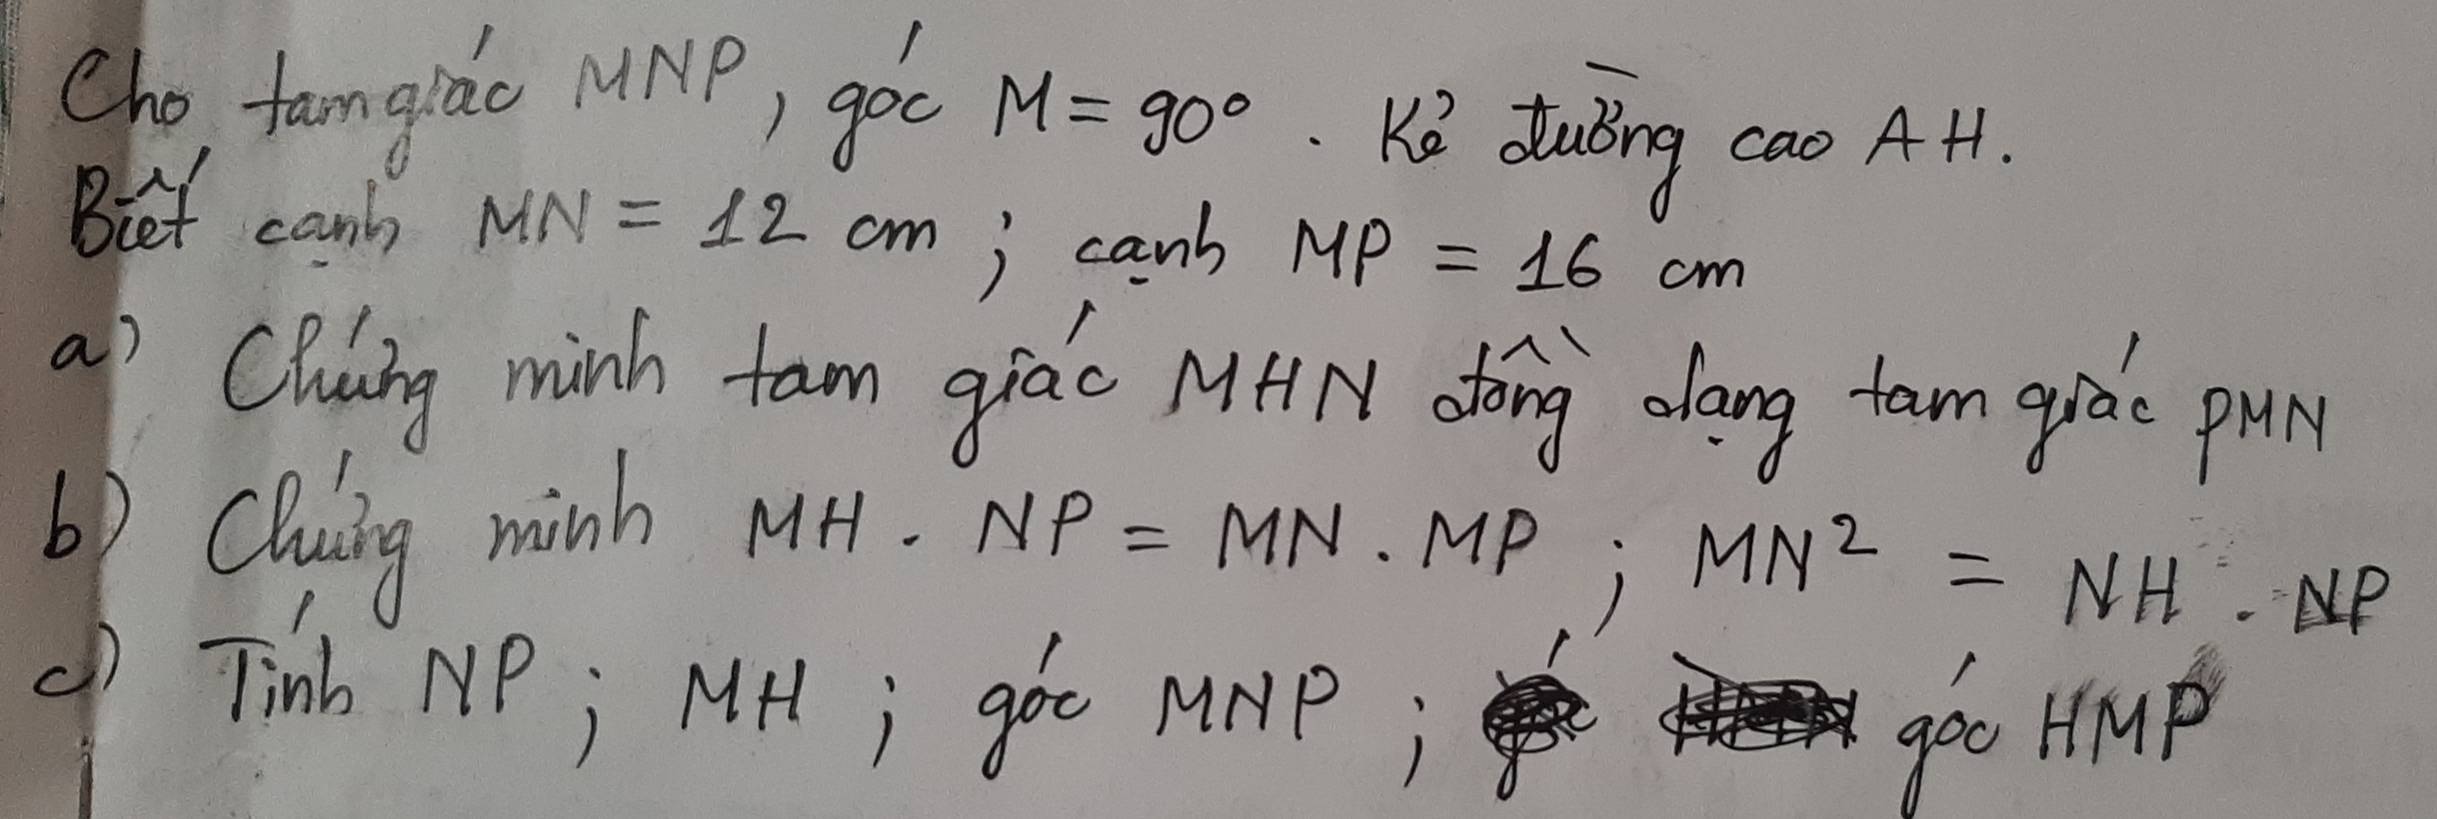 Cho tam giác MNP, góc M = 90°. Kẻ đường cao AH.
Biết cạnh MN = 12 cm ; cạnh MP = 16 cm
a) Chứng minh tam giác MHN đồng dạng tam giác PMN
b) Chứng minh MH . NP = MN . MP ; MN² = NH . NP
c) Tính NP ; MH ; góc MNP ; góc HMP